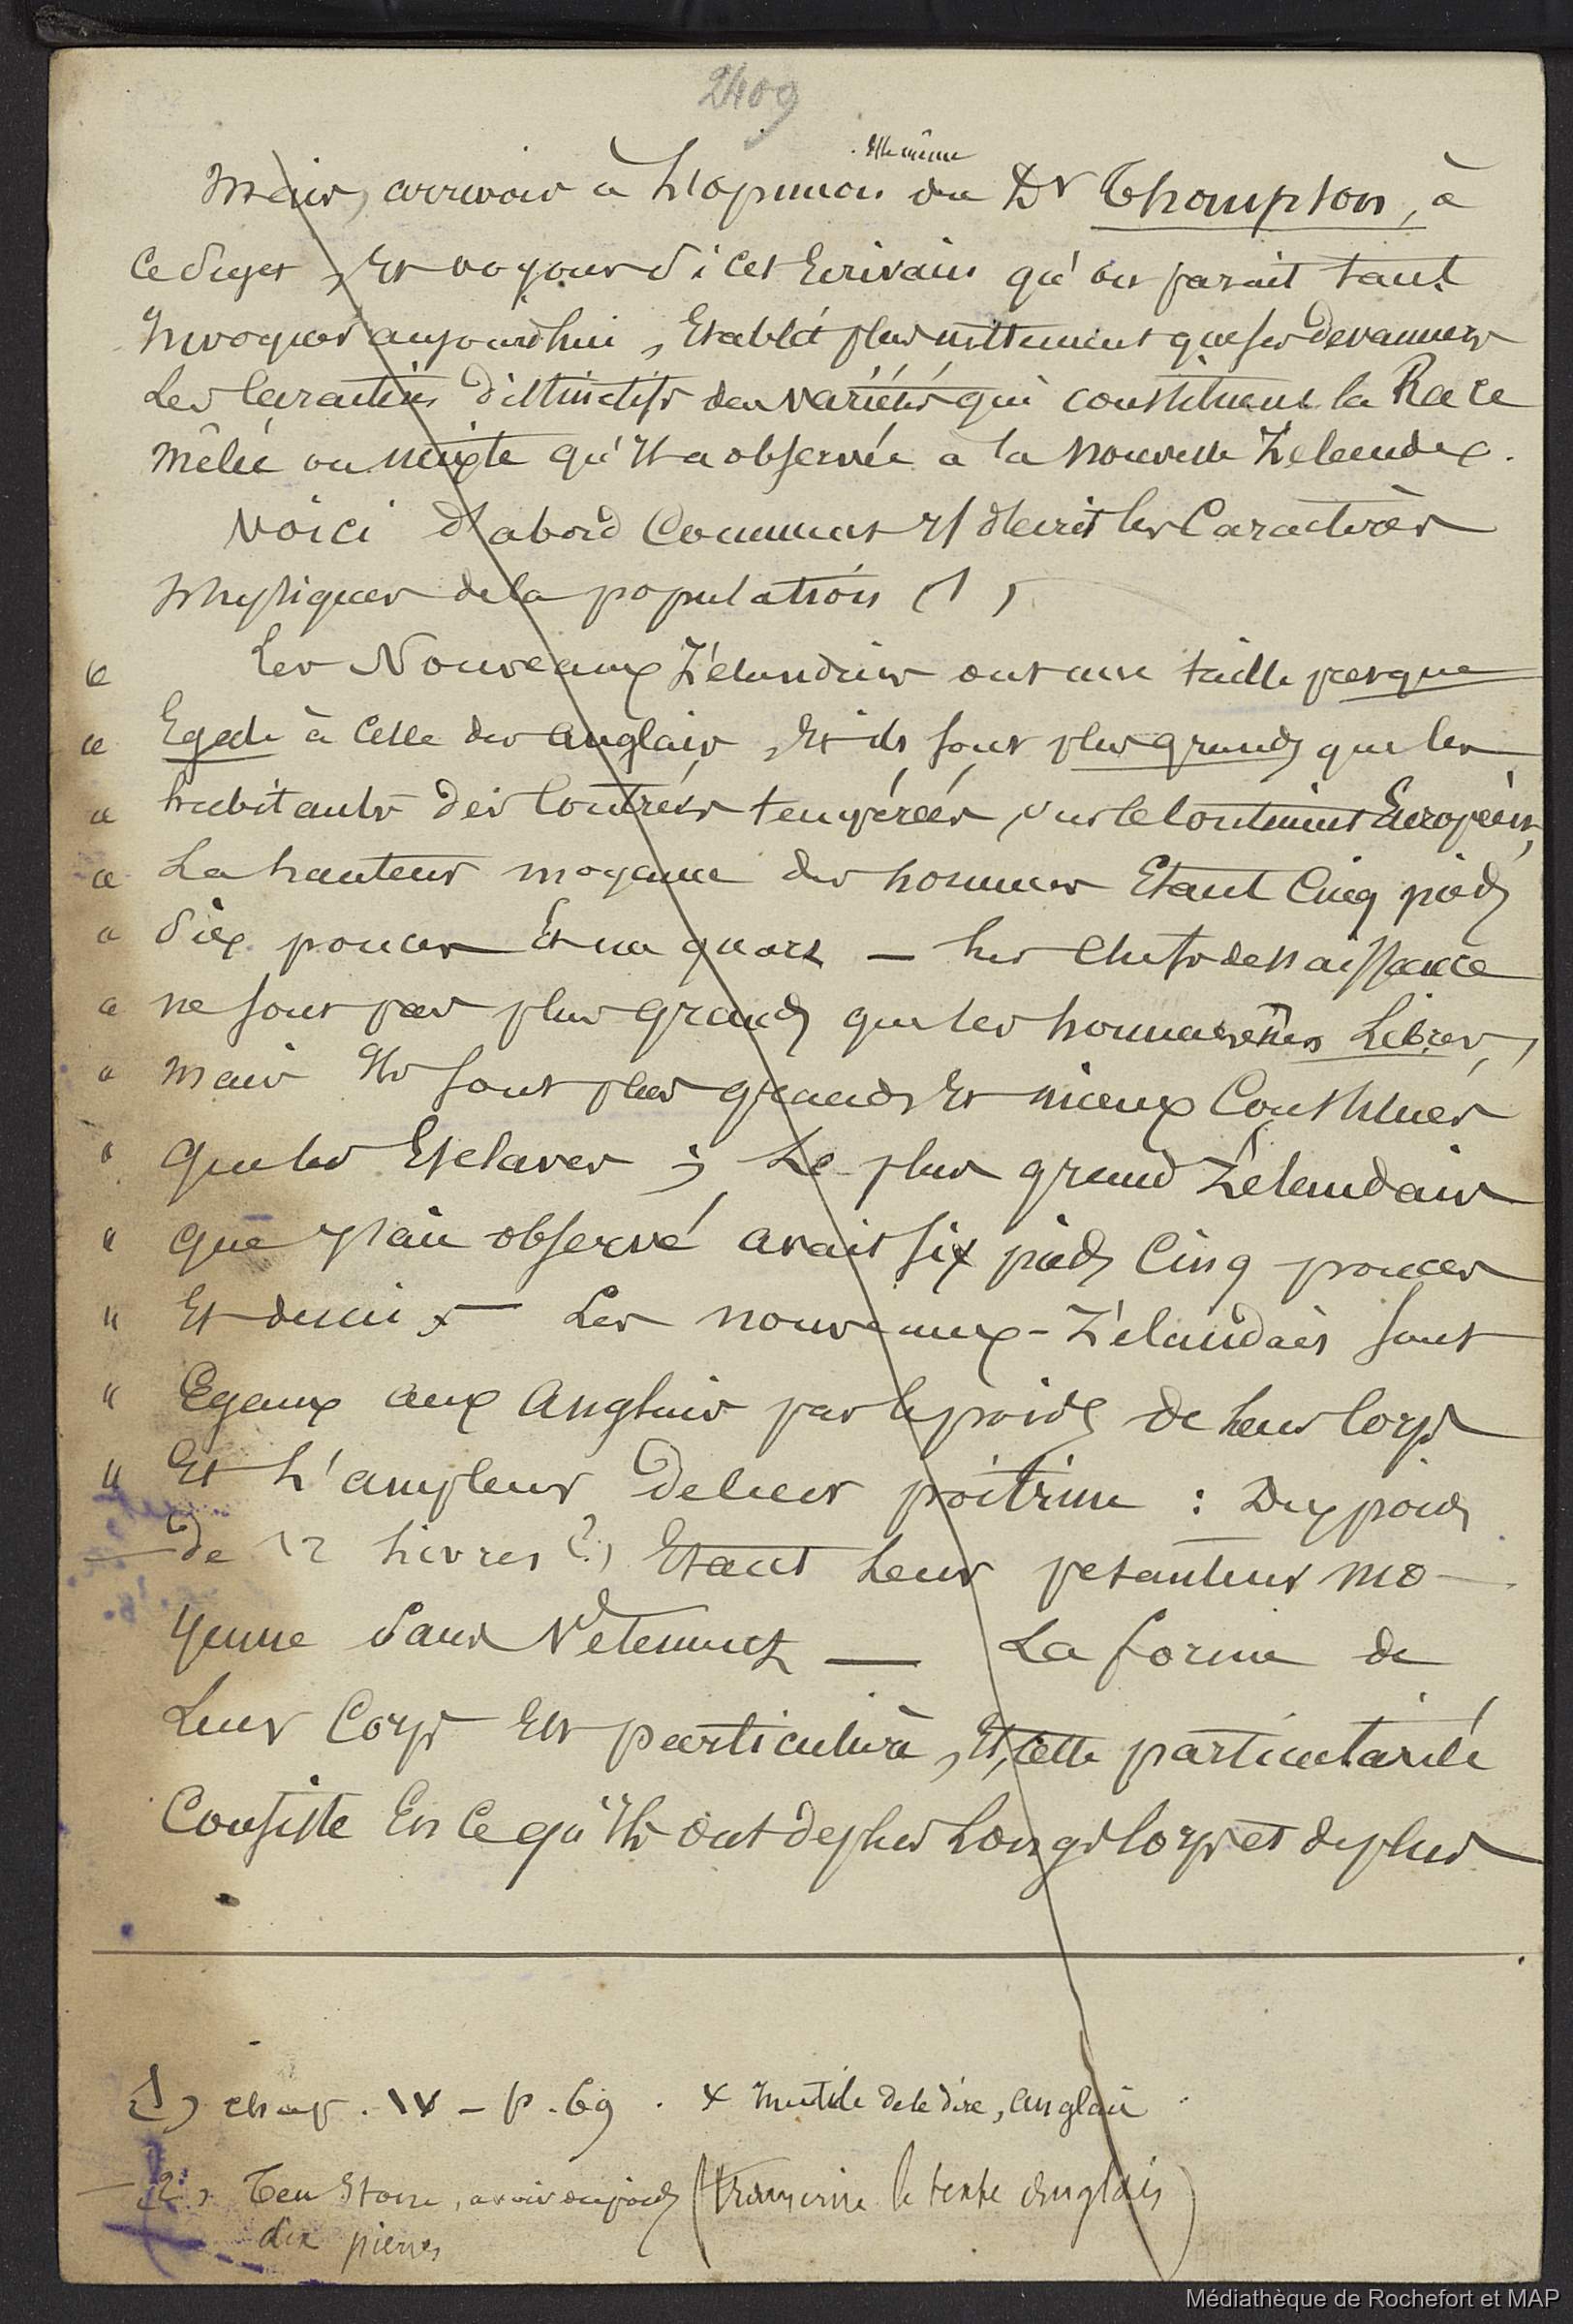 2409
Elle même
Mais, arrivons à L'opinion du Dr Thompson, à
ce sujet, Et voyons si cet Ecrivain qu'on parait tant
Invoquer aujourd'hui, Etablit plus nettement que ses devanciers
Les Caractères distinctifs des variétés qui constituent la Race
mêlée ou mixte qu'Il a observée à la Nouvelle Zélande.
Voici d'abord Comment Il décrit les Caractères
physiques de la population (1)
" Les Nouveaux Zélandais ont une taille presque
" Egale à Celle des Anglais, Et ils sont plus grands que les
" habitants des Contrées tempérées, sur le Continent Européen,
" La hauteur moyenne des hommes Etant Cinq pieds
" six pouces Et un quart — Les Chefs de naissance
" ne sont pas plus grands que les hommes nés Libres,
" mais Ils sont plus grands Et mieux Constitués
" que les Esclaves ; Le plus grand Zélandais
" que j'aie observé avait six pieds Cinq pouces
" Et demi x — Les nouveaux-Zélandais sont
" Egaux aux Anglais par le poids de leur Corps
" Et L'ampleur de leur poitrine : Dix poids
de 12 Livres (2) Etant Leur pesanteur mo-
yenne sans Vêtements — La forme de
Leur Corps Est particulière, Et cette particularité
Consiste En Ce qu'Ils ont de plus Longs Corps et de plus
(1) chap. IV – p. 69. x Inutile de le dire, Anglais
(2) Ten Stone, (transcrire le texte anglais)
dix pierres
Médiathèque de Rochefort et MAP